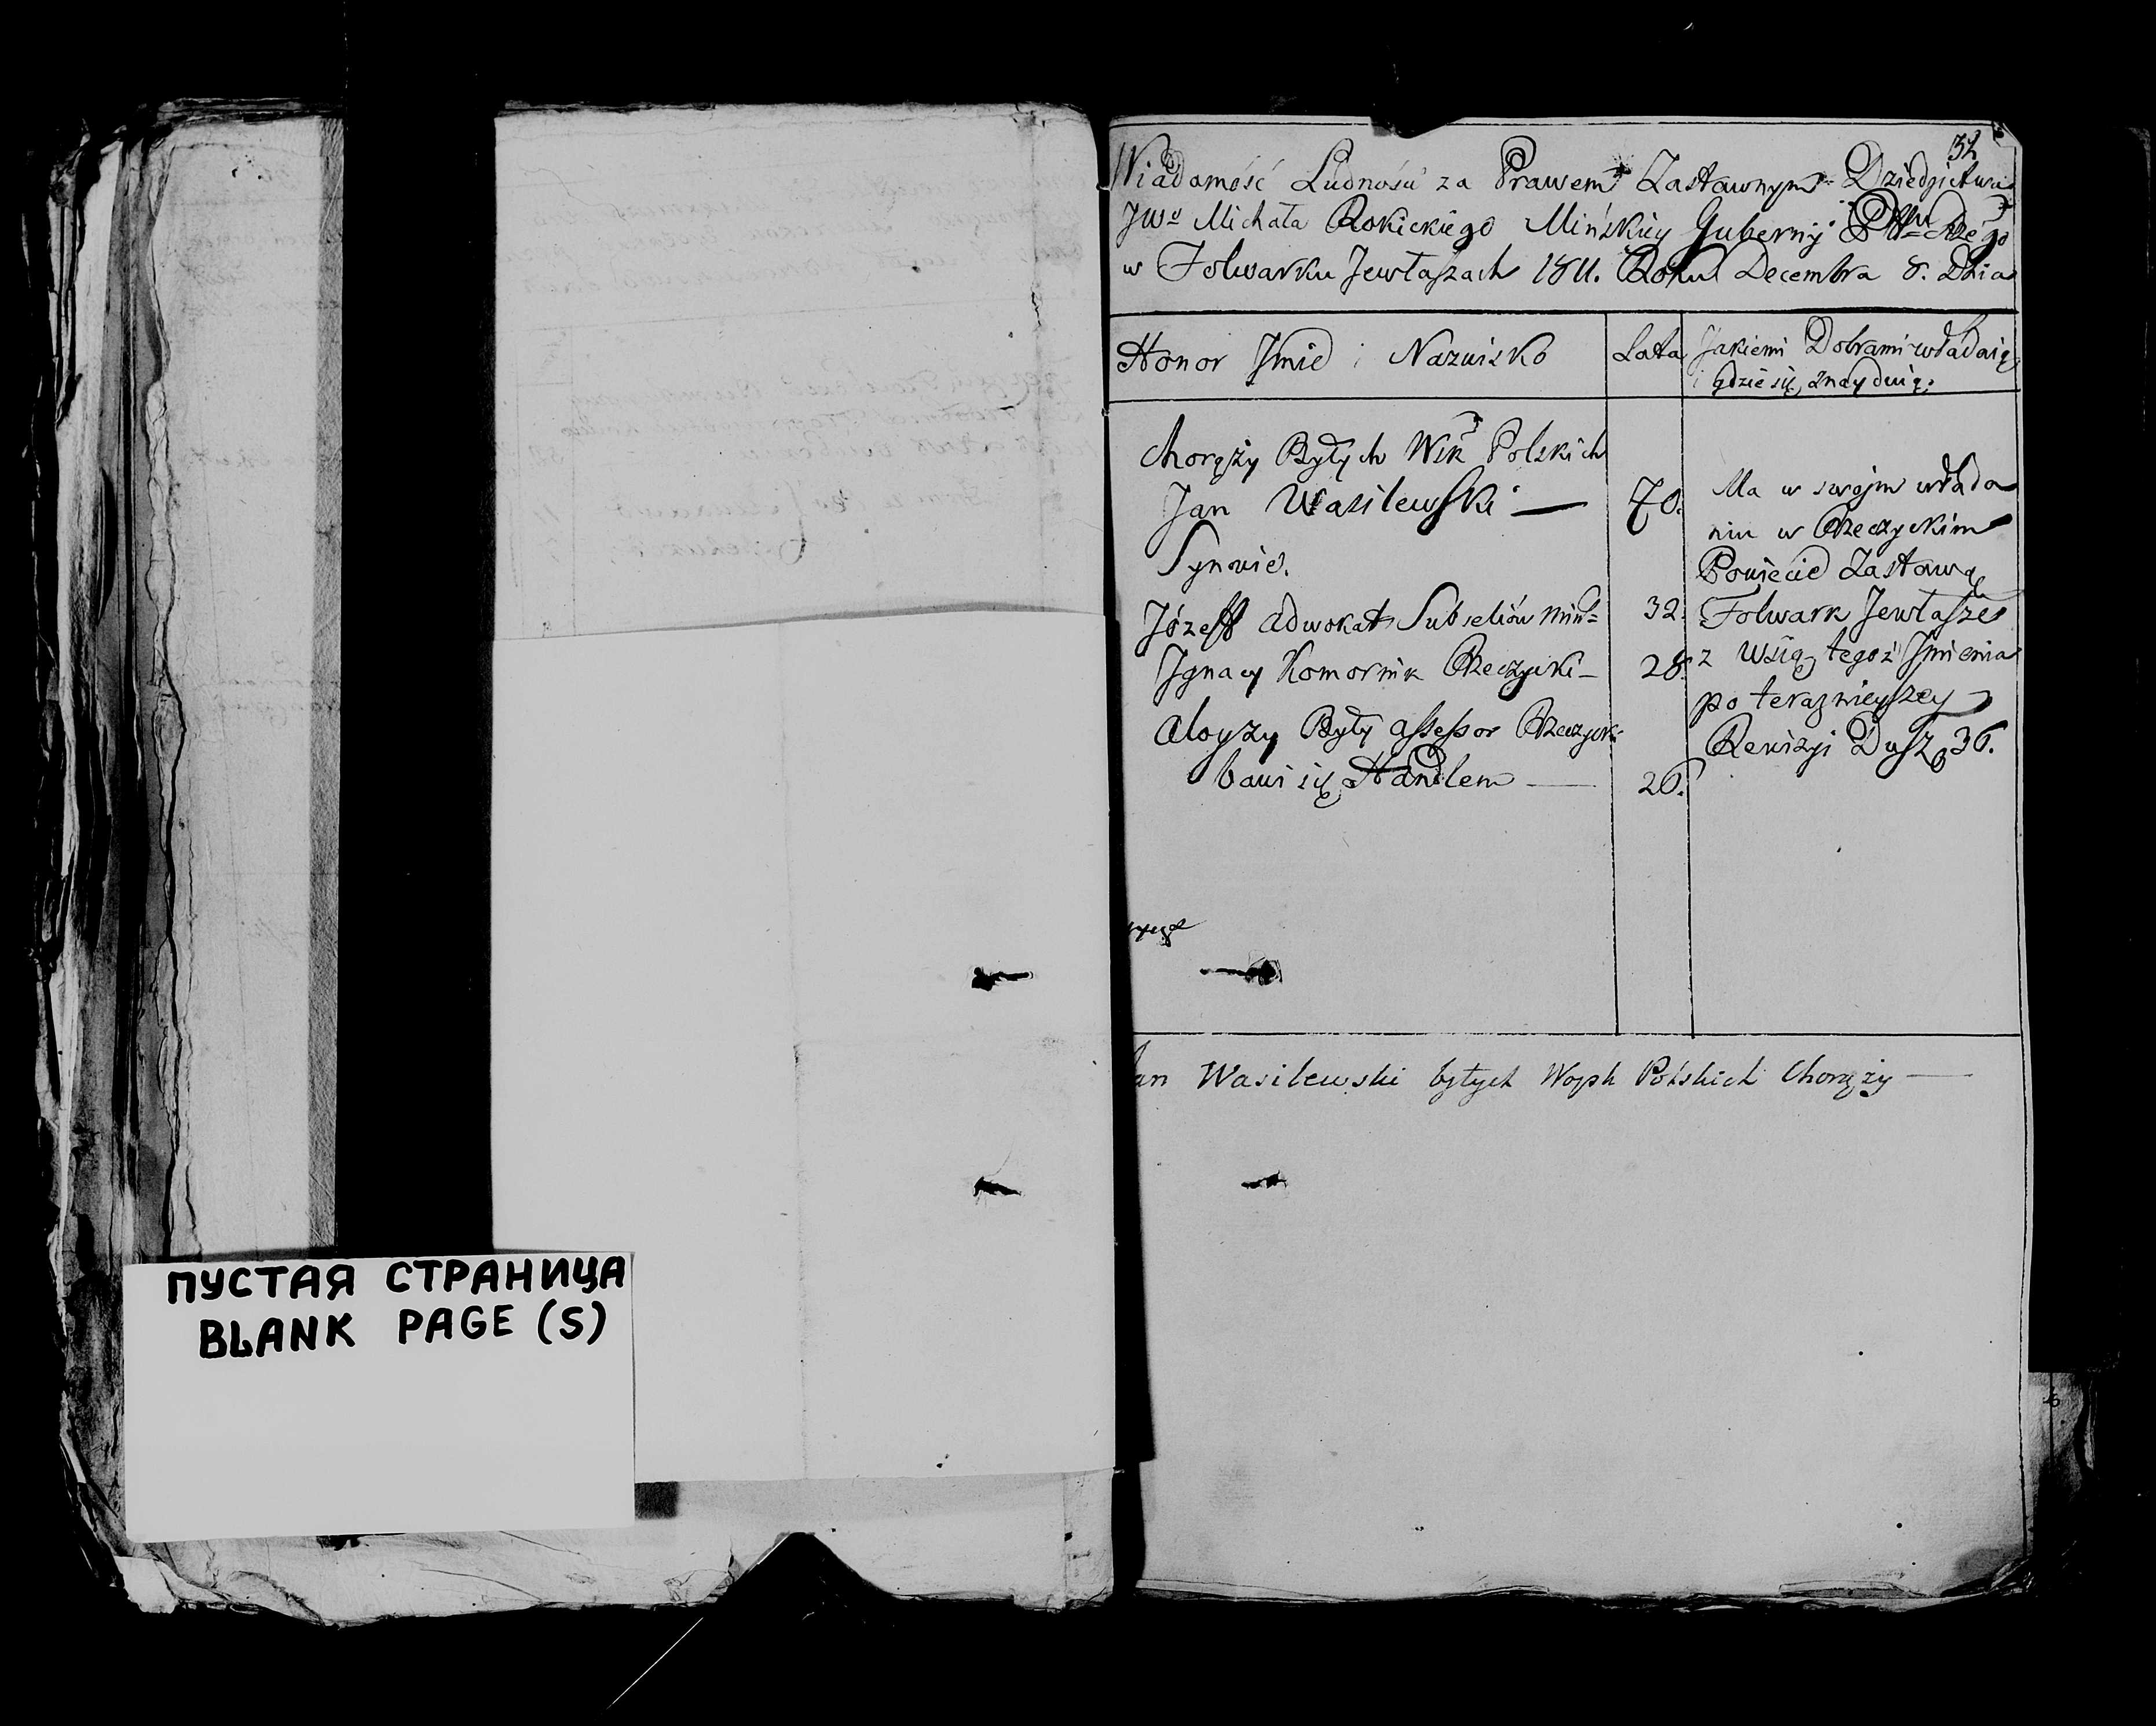 32
Wiadomość Ludnośći za Prawem Zastawnym Dziedzictwa
JWo Michała Rokickiego Mińskiey Gubernij
w Folwarku Jewłaszach 1811. Roku Decembra 8. Dnia
Honor Jmie i Nazwisko
Lata
Jakiemi Dobrami władaią
i gdzie się znayduią.
Chorąży Byłych Wsk Polskich
Jan Wasilewski —
70.
Synowie.
Józeff Adwokat Subseliów Miń=
32.
Jgnacy Komornik Rzeczycki —
28.
Aloyzy Były Assessor Rzeczycki
bawi się Handlem —
26.
Ma w swojm włada
niu w Rzeczyckim
Powiecie Zastawą
Folwark Jewłasze
z wsią tegoż Jmienia
po teraznieyszey
Rewizyi Dusz 36.
Jan Wasilewski byłych Woysk Polskich Chorąży —
ПУСТАЯ СТРАНИЦА
BLANK PAGE (S)